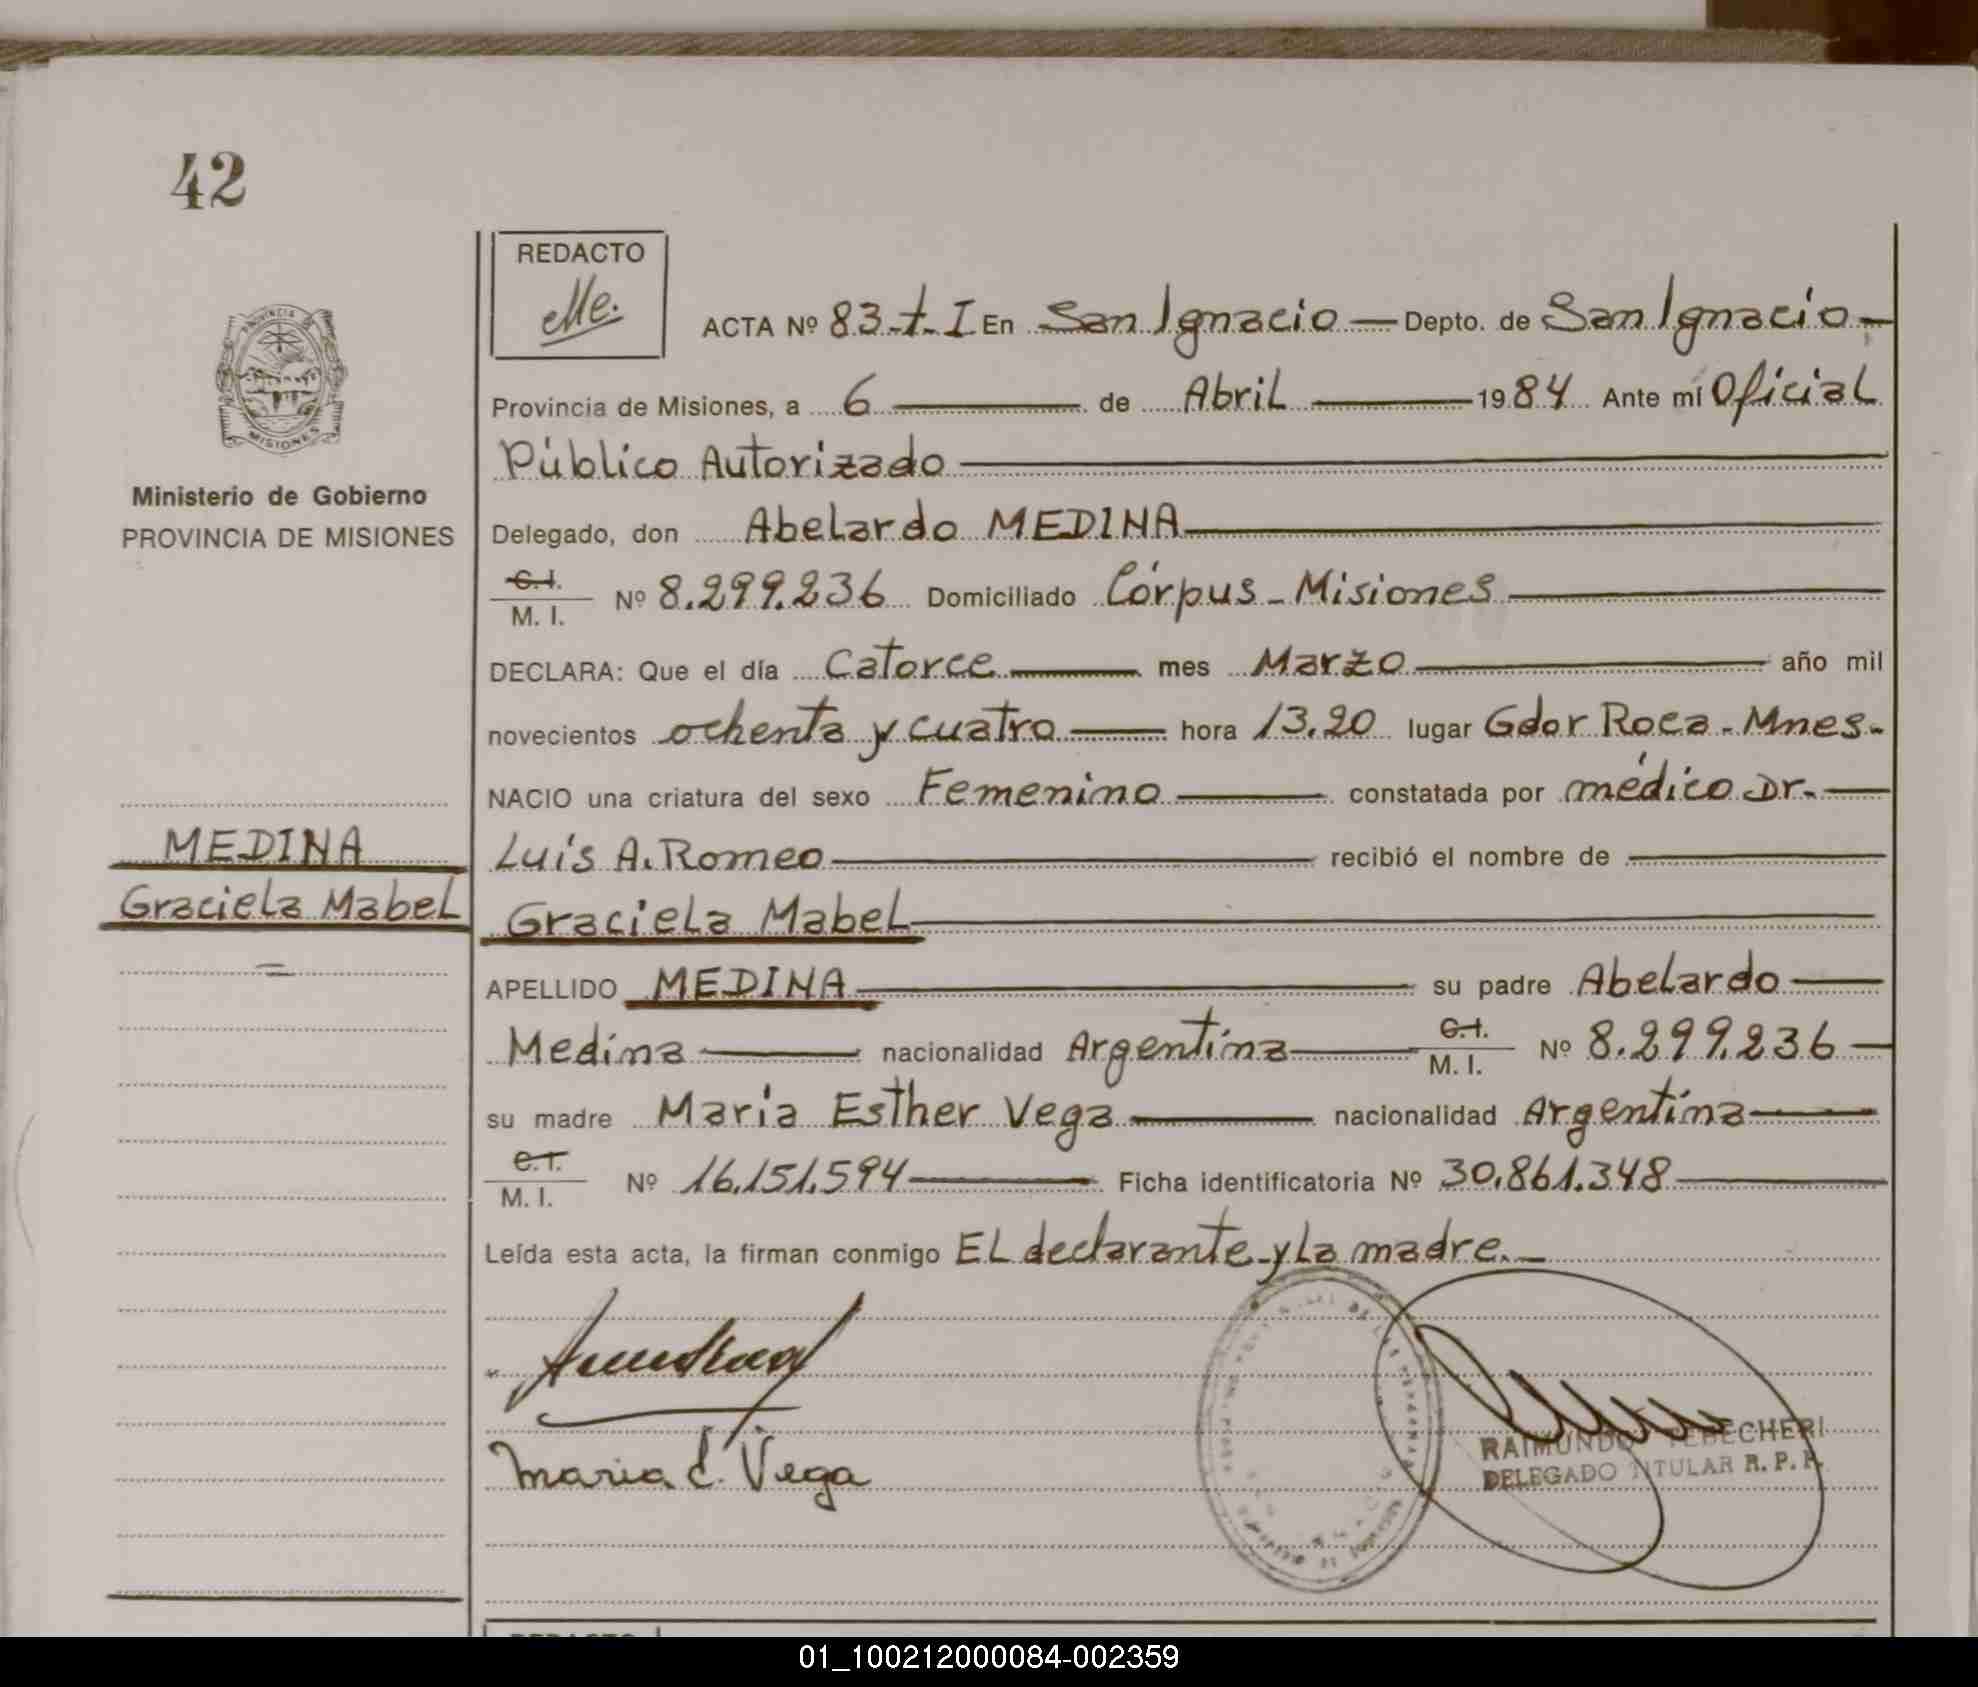 42
REDACTO
Me.
ACTA Nº 83-t-I En San Ignacio — Depto. de San Ignacio -
Provincia de Misiones, a 6 — de Abril — 1984 Ante mí Oficial
Público Autorizado
Ministerio de Gobierno
PROVINCIA DE MISIONES
Delegado, don Abelardo MEDINA
C.I.
M. I. Nº 8.299.236 Domiciliado Córpus - Misiones
DECLARA: Que el día Catorce — mes Marzo — año mil
novecientos ochenta y cuatro — hora 13.20 lugar Gdor Roca - Mnes -
NACIO una criatura del sexo Femenino — constatada por médico Dr. —
Luis A. Romeo — recibió el nombre de —
MEDINA
Graciela Mabel
Graciela Mabel
APELLIDO MEDINA — su padre Abelardo —
Medina — nacionalidad Argentina — C.I. M. I. Nº 8.299.236 —
su madre María Esther Vega — nacionalidad Argentina —
C.I.
M. I. Nº 16.151.594 — Ficha identificatoria Nº 30.861.348 —
Leída esta acta, la firman conmigo EL declarante y La madre. -
Maria E. Vega
RAIMUNDO TEBECHERI
DELEGADO TITULAR R. P. P.
01_100212000084-002359